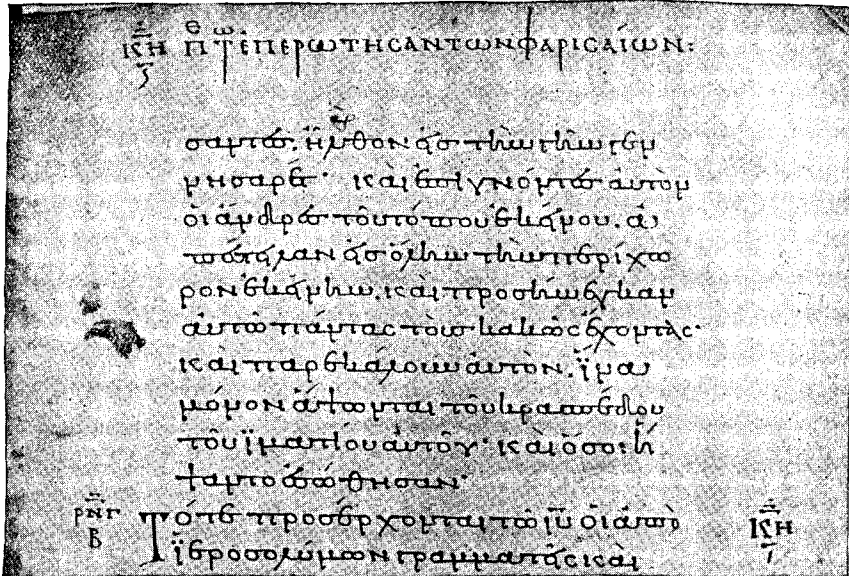 ἐπερωτησάντων φαρισαίων:
σαντες. ἦλθον εἰς τὴν γῆν γεν
νησαρέτ· καὶ ἐπιγνόντες αὐτὸν
οἱ ἄνδρες τοῦ τόπου ἐκείνου. ἀ
πέστειλαν εἰς ὅλην τὴν περίχω
ρον ἐκείνην. καὶ προσήνεγκαν
αὐτῶ πάντας τοὺς κακῶς ἔχοντας·
καὶ παρεκάλουν αὐτὸν. ἵνα
μόνον ἅψωνται τοῦ κρασπέδου
τοῦ ἱματίου αὐτοῦ· καὶ ὅσοι ἥ
ψαντο ἐσώθησαν·
ρνγ Β Τότε προσέρχονται τῶ ἰῦ οἱ ἀπὸ
ἱεροσολύμων γραμματεῖς καὶ